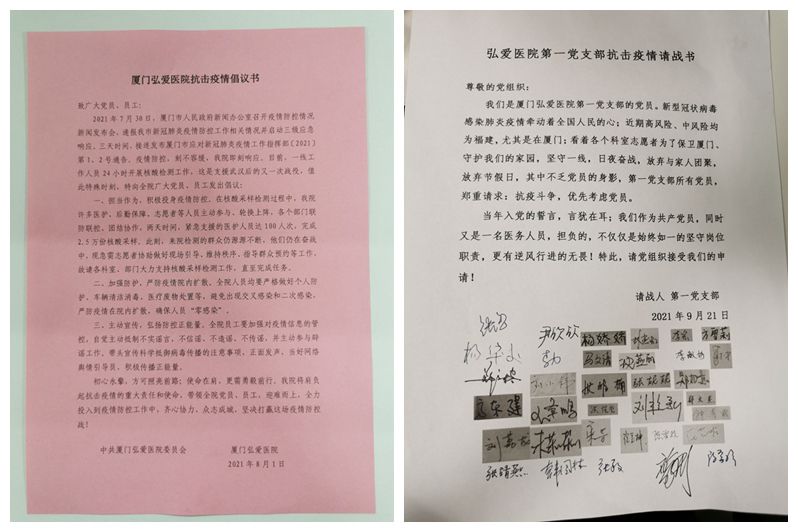 厦门弘爱医院抗击疫情倡议书
致广大党员、员工:
2021年7月30日,厦门市人民政府新闻办公室召开疫情防控情况
新闻发布会,通报我市新冠肺炎疫情防控工作相关情况并启动三级应急
响应。三天时间,接连发布厦门市应对新冠肺炎疫情工作指挥部〔2021〕
第1、2号通告。疫情防控,刻不容缓,我院即刻响应。目前,一线工
作人员24小时开展核酸检测工作,这是支援武汉后的又一次战役,值
此特殊时刻,特向全院广大党员、员工发出倡议:
一、担当作为,积极投身疫情防控。在核酸采样检测过程中,我院
许多医护、后勤保障、志愿者等人员主动参与、轮换上阵,各个部门联
防联控、团结协作,两天时间,紧急支援的医护人员达100人次,完成
2.5万份核酸采样。此刻,来院检测的群众仍源源不断,他们仍在奋战
中。现急需志愿者协助做好现场引导、维持秩序、指导群众预约等工作,
故请各科室、部门大力支持核酸采样检测工作,直至完成任务。
二、加强防护,严防疫情院内扩散。全院人员均要严格做好个人防
护、车辆清洁消毒、医疗废物处置等,避免出现交叉感染和二次感染,
严防疫情在院内扩散,确保人员“零感染”。
三、主动宣传,弘扬防控正能量。全院员工要加强对疫情信息的管
控,自觉主动抵制不实谣言,不信谣、不造谣、不传谣,并主动参与辟
谣工作,带头宣传科学抵御病毒传播的注意事项,正面发声,当好网络
舆情引导员,积极传播正能量。
初心永擎,方可照亮前路;使命在肩,更需勇毅前行。我院将肩负
起抗击疫情的重大责任和使命,带领全院党员、员工,迎难而上,全力
投入到疫情防控工作中,齐心协力、众志成城,坚决打赢这场疫情防控
战!
中共厦门弘爱医院委员会 厦门弘爱医院
2021年8月1日
弘爱医院第一党支部抗击疫情请战书
尊敬的党组织:
我们是厦门弘爱医院第一党支部的党员。新型冠状病毒
感染肺炎疫情牵动着全国人民的心;近期高风险、中风险均
为福建,尤其是在厦门;看着各个科室志愿者为了保卫厦门、
守护我们的家园,坚守一线,日夜奋战,放弃与家人团聚,
放弃节假日,其中不乏党员的身影,第一党支部所有党员,
郑重请求:抗疫斗争,优先考虑党员。
当年入党的誓言,言犹在耳;我们作为共产党员,同时
又是一名医务人员,担负的,不仅仅是始终如一的坚守岗位
职责,更有逆风行进的无畏!特此,请党组织接受我们的申
请!
请战人 第一党支部
2021年9月21日